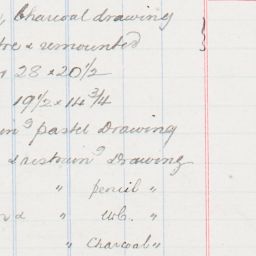 Charcoal drawing
& remounted
28 x 20 1/2
19 1/2 x 14 3/4
pastel Drawing
& restrain^g Drawing
" pencil "
" Wb. "
" Charcoal "